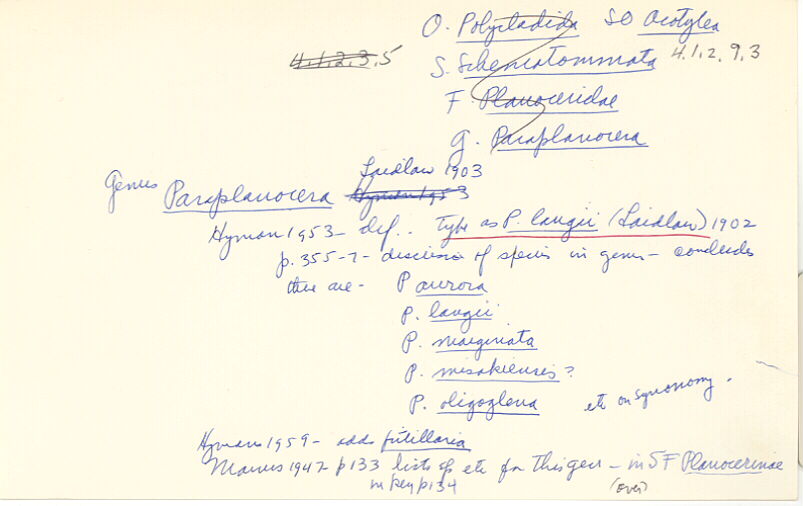 O. Polycladida SO Acotylea
4.1.2.3.5
S. Schematommata 4.1.2.9.3
F. Planoceridae
G. Paraplanocera
Laidlaw 1903
Genus Paraplanocera Hyman 1953
Hyman 1953 - def. . Type as P. langii (Laidlaw) 1902
p. 355-7 - discussion of species in genus - concludes
there are - P aurora
P. langii
P. marginata
P. misakiensis ?
P. oligoglena etc on synonomy.
Hyman 1959 - adds fritillaria
Marcus 1947 p133 lists sps etc for this genus - in SF Planocerinae
in key p134 (over)